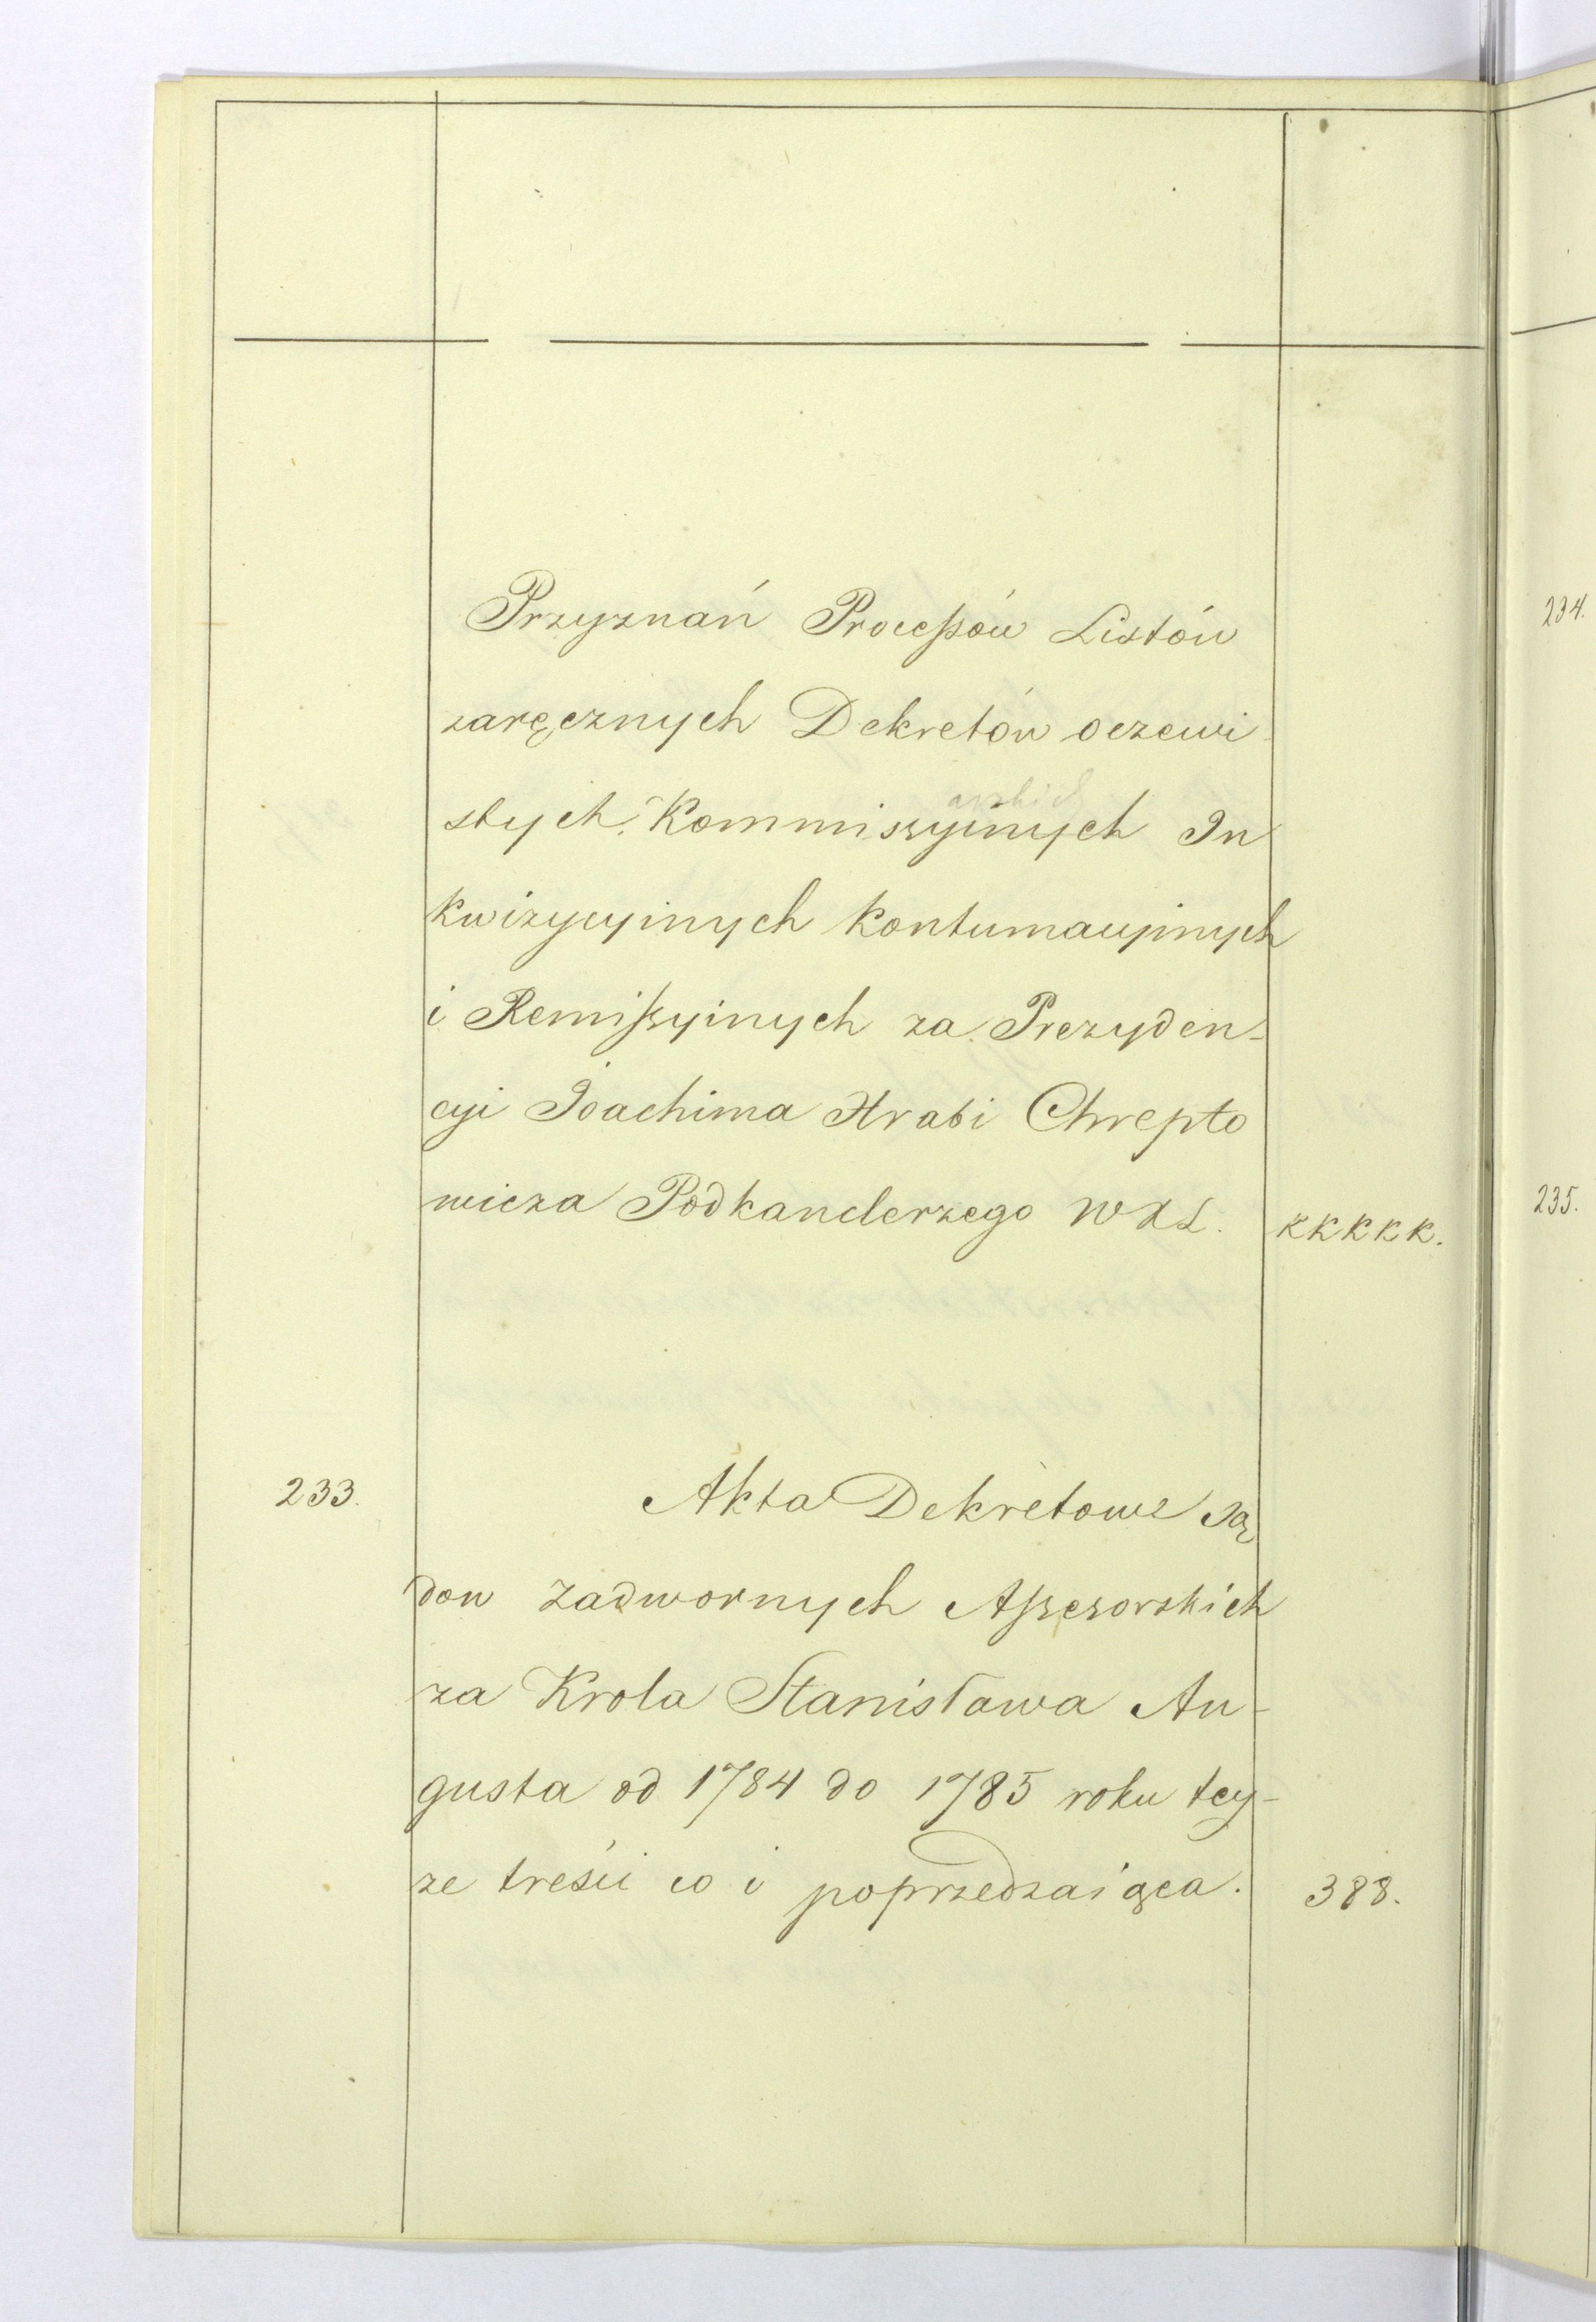 Przyznań Processów Listów
zaręcznych Dekretów oczewi
stych, Kommissyinych In
arskich
kwizycyinych kontumacyinych
i Remissyinych za Prezyden-
cyi Joachima Hrabi Chrepto
wicza Podkanclerzego WXL. KKKKK.
233. Akta Dekretowe Są
dow Zadwornych Assesorskich
za Krola Stanisława Au-
gusta od 1784 do 1785 roku tey-
że treści co i poprzedzaiąca. 388.
234.
235.